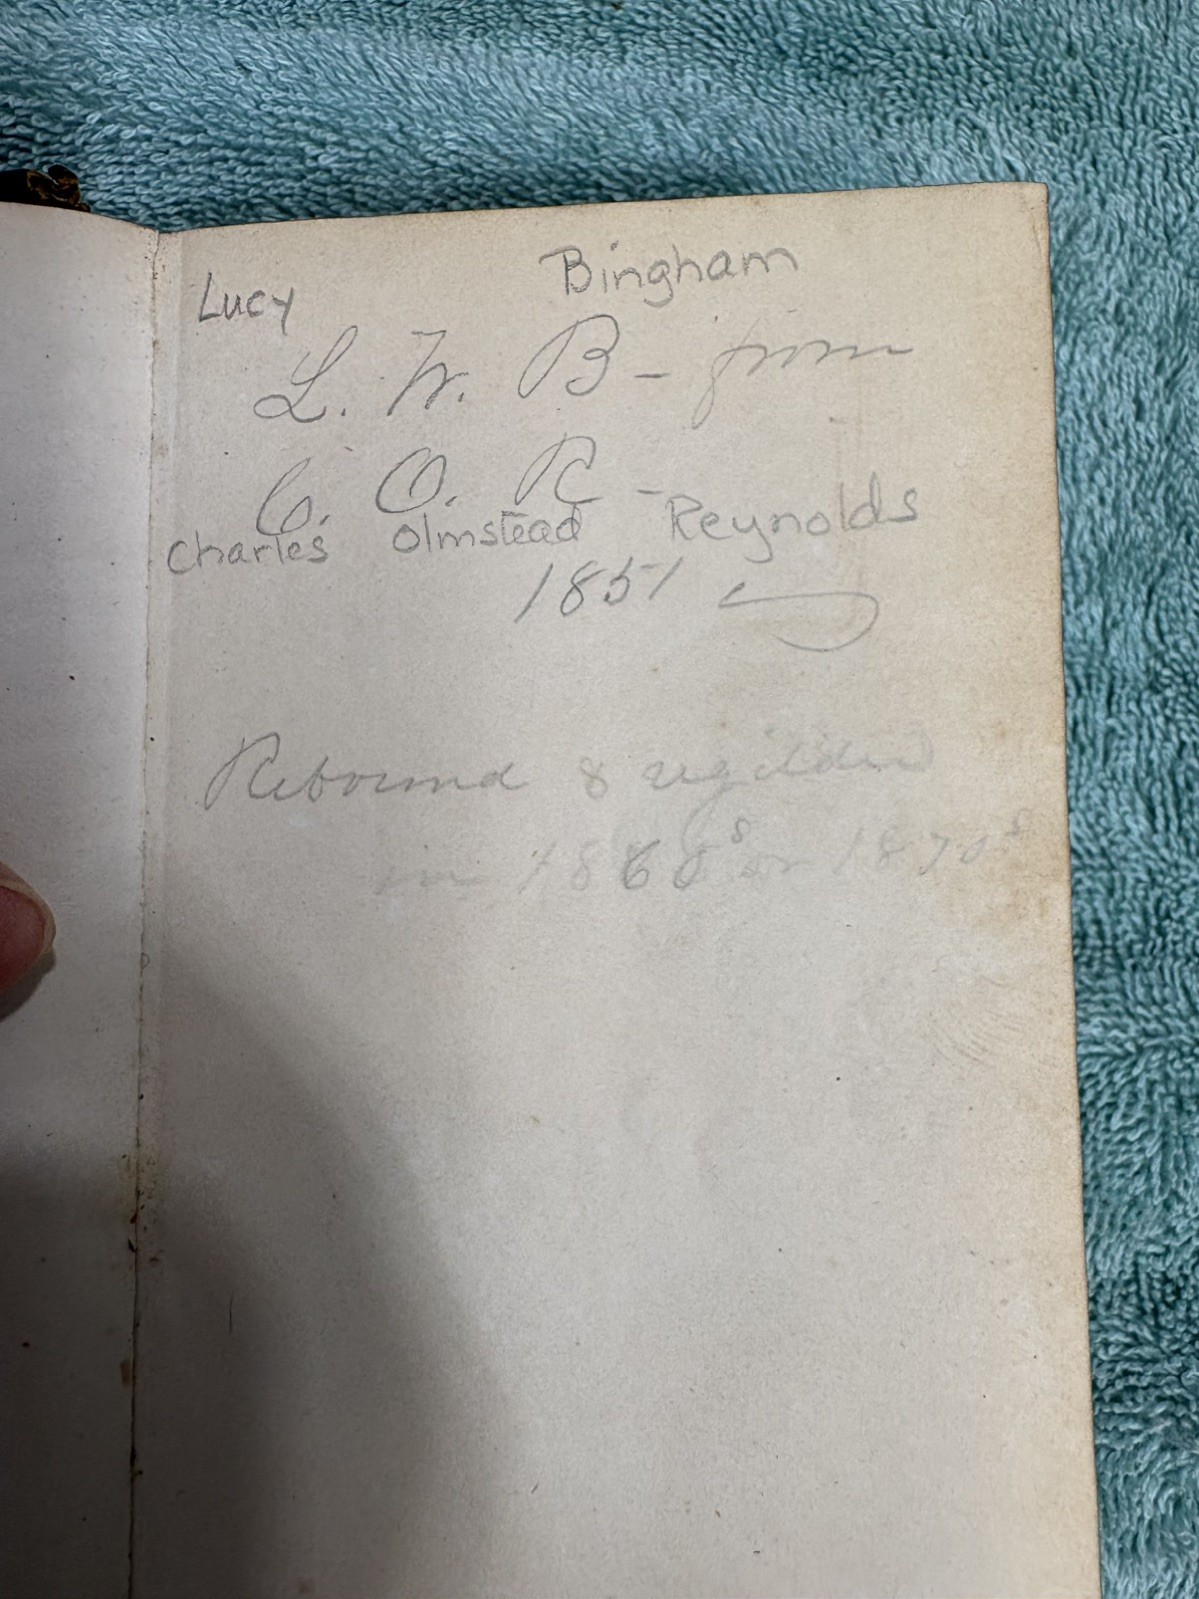 Lucy Bingham
L. W. B - from
C. O. R -
Charles Olmstead Reynolds
1851
Rebound & regilded
in 1860s or 1870s